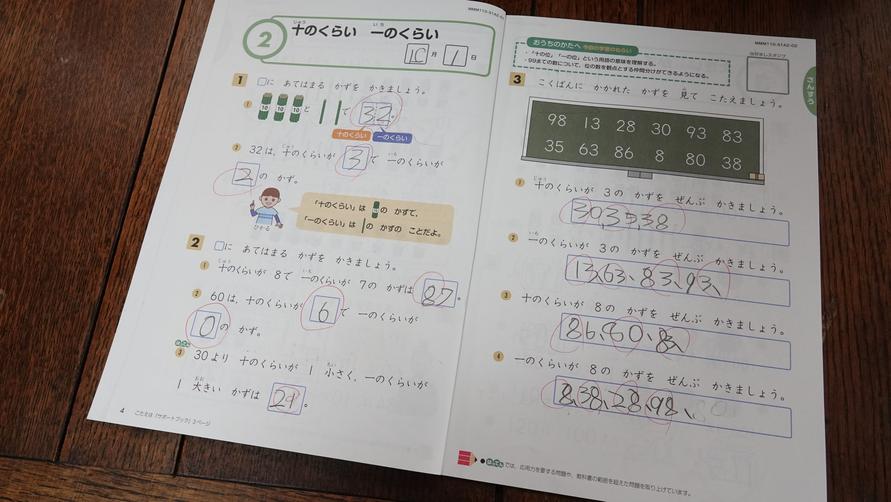 2 十のくらい 一のくらい
じゅう いち
10月1日
1 □に あてはまる かずを かきましょう。
① と で 32。
十のくらい 一のくらい
② 32は、十のくらいが 3 で 一のくらいが
2 の かず。
ひかる
「十のくらい」は 10 の かずで、
「一のくらい」は の かずの ことだよ。
2 □に あてはまる かずを かきましょう。
① 十のくらいが 8で 一のくらいが 7の かずは 87。
② 60は、十のくらいが 6 で 一のくらいが
0 の かず。
③ 30より 十のくらいが 1 小さく、一のくらいが
1 大きい かずは 21。
4 こたえは「サポートブック」3ページ
MMM110-S1A2-02
おうちのかたへ 今回の学習のねらい
・「十の位」「一の位」という用語の意味を理解する。
・99までの数について、位の数を観点とする仲間分けができるようになる。
さんすう
3 こくばんに かかれた かずを 見て こたえましょう。
98 13 28 30 93 83
35 63 86 8 80 38
① 十のくらいが 3の かずを ぜんぶ かきましょう。
30,35,38
② 一のくらいが 3の かずを ぜんぶ かきましょう。
13、63、83、93、
③ 十のくらいが 8の かずを ぜんぶ かきましょう。
86、80、83、
④ 一のくらいが 8の かずを ぜんぶ かきましょう。
8、38、28、98、
では、応用力を要する問題や、教科書の範囲を超えた問題を取り上げています。